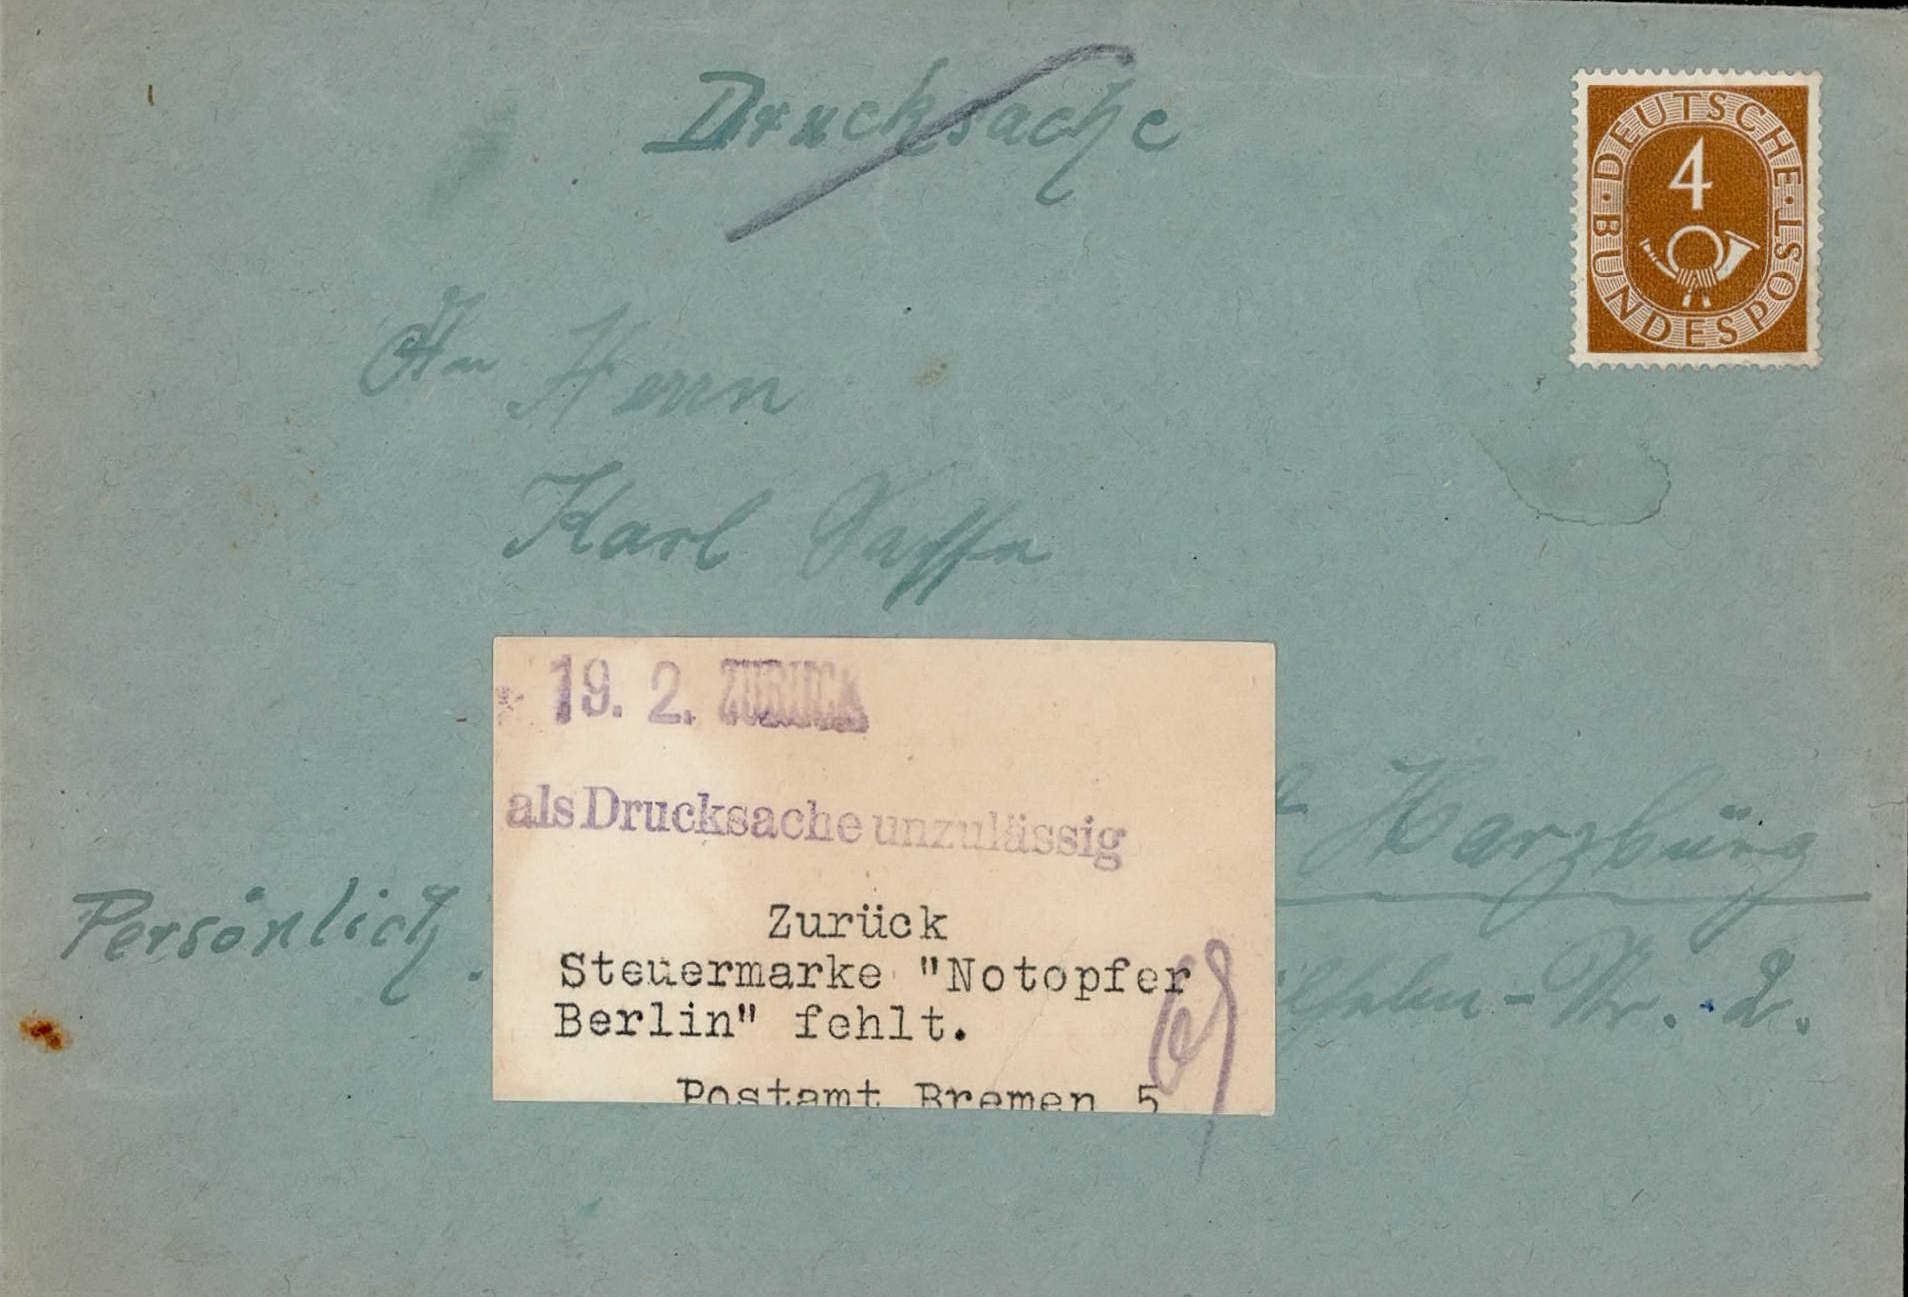 Drucksache
DEUTSCHE · BUNDESPOST ·
4
An Herrn
Karl
19. 2. ZURÜCK
als Drucksache unzulässig
Zurück
Steuermarke "Notopfer
Berlin" fehlt.
Postamt Bremen 5
Harzbürg
Persönlich.
-Str. 2.